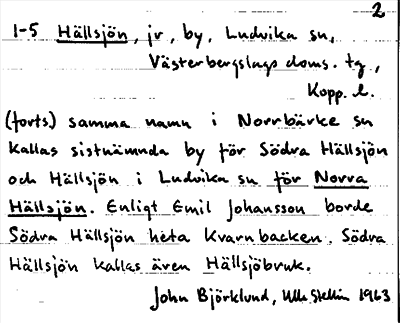 2
1-5 Hällsjön, jr, by, Ludvika sn,
Västerbergslags doms. tg.,
Kopp. l.
(forts.) samma namn i Norrbärke sn
kallas sistnämnda by för Södra Hällsjön
och Hällsjön i Ludvika sn för Norra
Hällsjön. Enligt Emil Johansson borde
Södra Hällsjön heta Kvarnbacken. Södra
Hällsjön kallas även Hällsjöbruk.
John Björklund, Ulla Stellin 1963